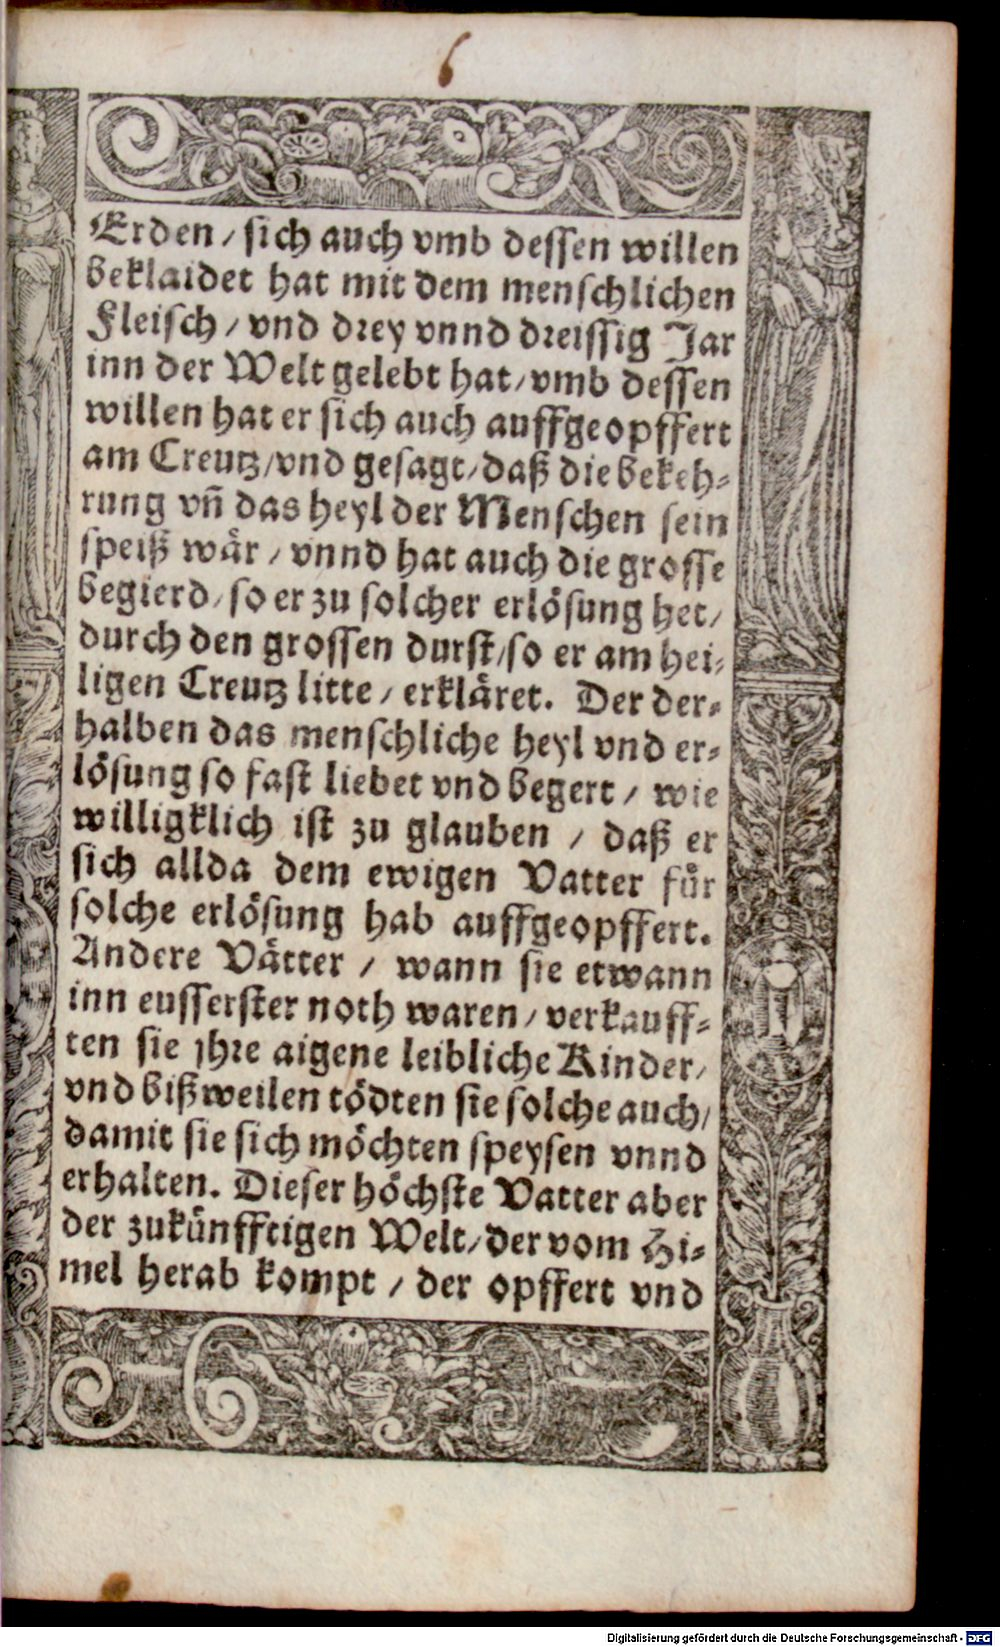 6
Erden / sich auch vmb dessen willen
beklaidet hat mit dem menschlichen
Fleisch / vnd drey vnnd dreissig Jar
inn der Welt gelebt hat / vmb dessen
willen hat er sich auch auffgeopffert
am Creutz / vnd gesagt / daß die bekeh-
rung vñ das heyl der Menschen sein
speiß wår / vnnd hat auch die grosse
begierd / so er zu solcher erlösung het /
durch den grossen durst / so er am hei-
ligen Creutz litte / erkläret. Der der-
halben das menschliche heyl vnd er-
lösung so fast liebet vnd begert / wie
willigklich ist zu glauben / daß er
sich allda dem ewigen Vatter für
solche erlösung hab auffgeopffert.
Andere Vätter / wann sie etwann
inn eusserster noth waren / verkauff-
ten sie jhre aigene leibliche Kinder /
vnd bißweilen tödten sie solche auch /
damit sie sich möchten speysen vnnd
erhalten. Dieser höchste Vatter aber
der zukünfftigen Welt / der vom Hi-
mel herab kompt / der opffert vnd
Digitalisierung gefördert durch die Deutsche Forschungsgemeinschaft - DFG